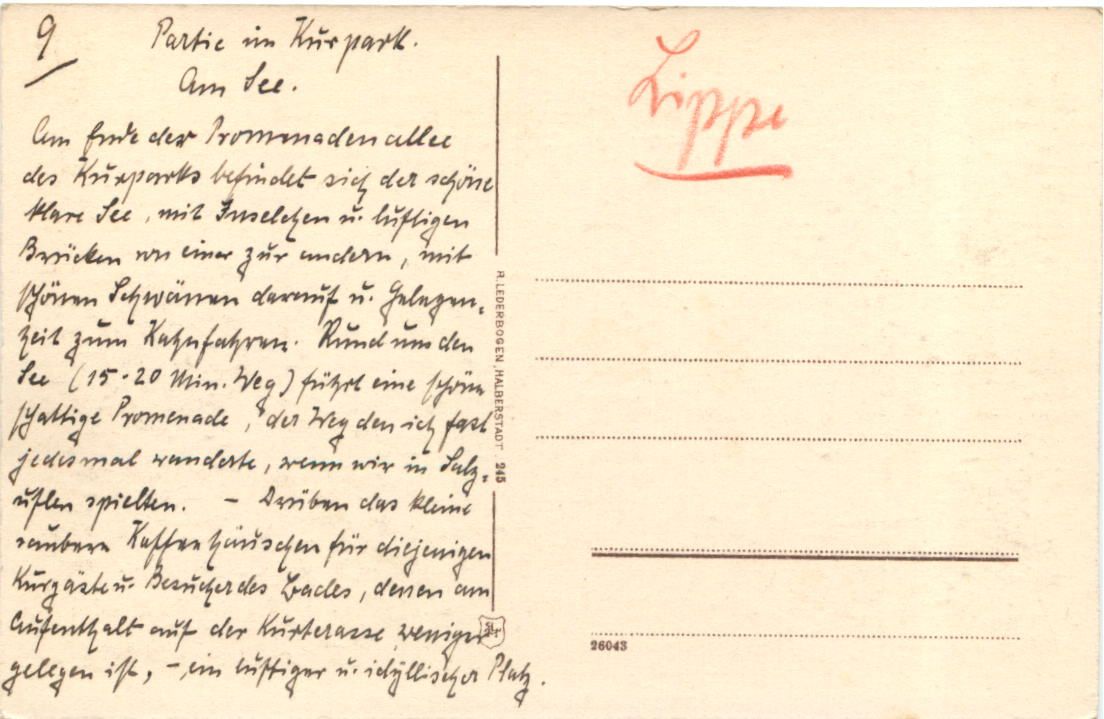 9
Partie im Kurpark.
Am See.
Am Ende der Promenadenallee
des Kurparks befindet sich der schöne
klare See, mit Inselchen u. luftigen
Brücken von einer zur andern, mit
schönen Schwänen darauf u. Gelegen-
heit zum Kahnfahren. Rund um den
See (15-20 Min. Weg) führt eine schöne
schattige Promenade, der Weg den ich fast
jedesmal wanderte, wenn wir in Salz-
uflen spielten. – Drüben das kleine
saubere Kaffeehäuschen für diejenigen
Kurgäste u. Besucher des Bades, denen am
Aufenthalt auf der Kurterasse weniger
gelegen ist, – ein luftiger u. idyllischer Platz.
Lippe
R. LEDERBOGEN, HALBERSTADT 245
26043